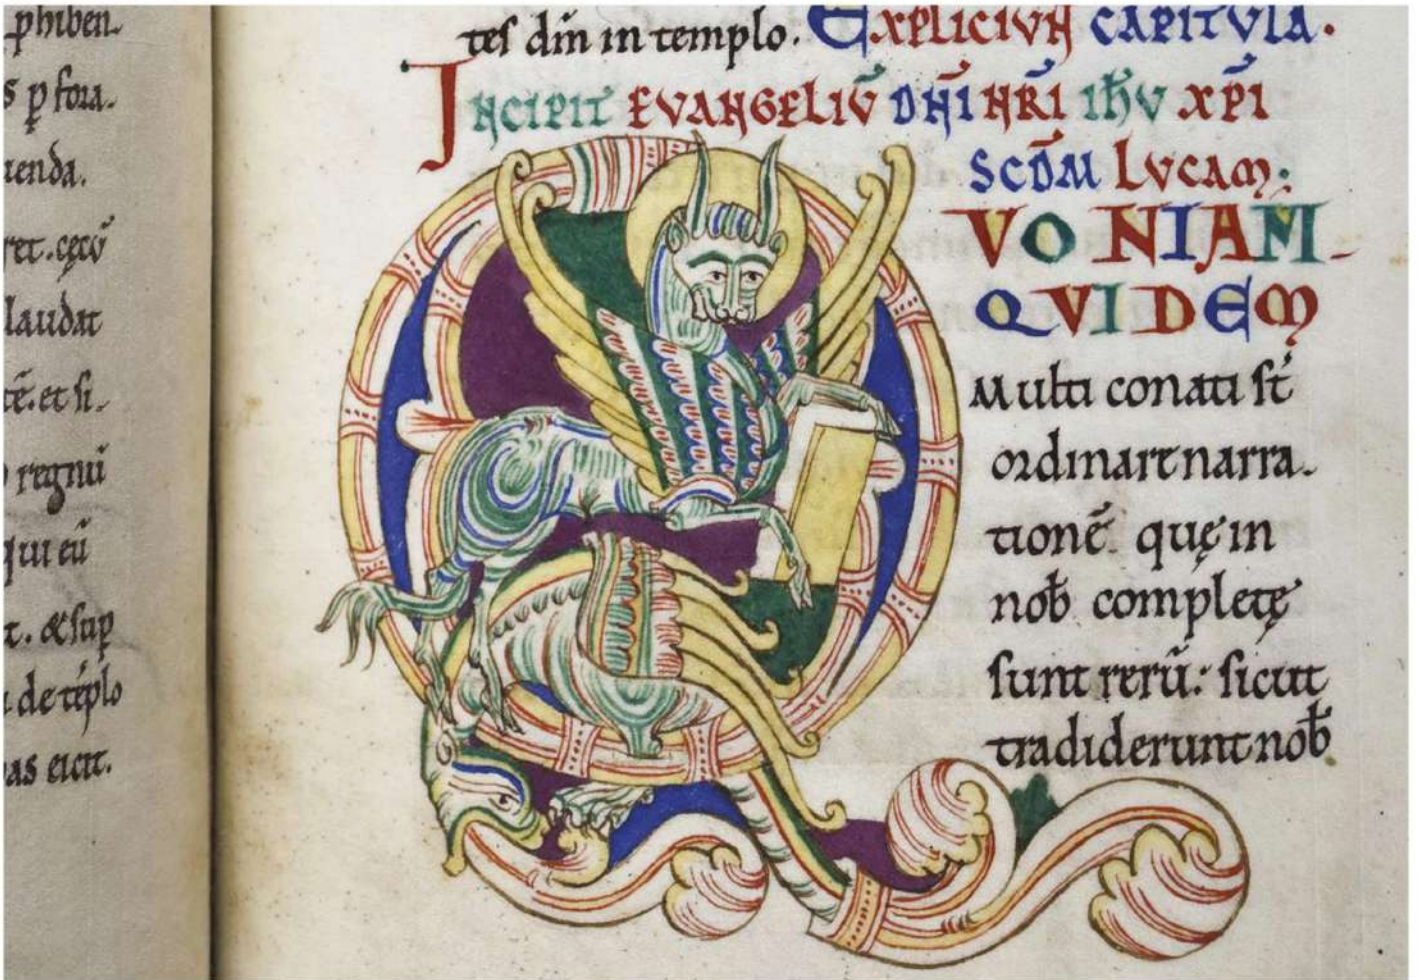 phiben-
s ꝑ fora.
uenda.
ret. cęcū
laudat
tē. et si-
regnū
qui eū
t. & sup
de tēplo
as eicit.
tes dm̄ in templo. EXPLICIUN CAPITVLA.
INCIPIT EVANGELIV̄ DN̄I NR̄I IH̄V XP̄I
SCD̄M LVCAM:
QVONIAM
QVIDEM
Multi conati st̄
ordinare narra-
tionē que̜ in
nob̄ complete̜
sunt rerū: sicut
tradiderunt nob̄